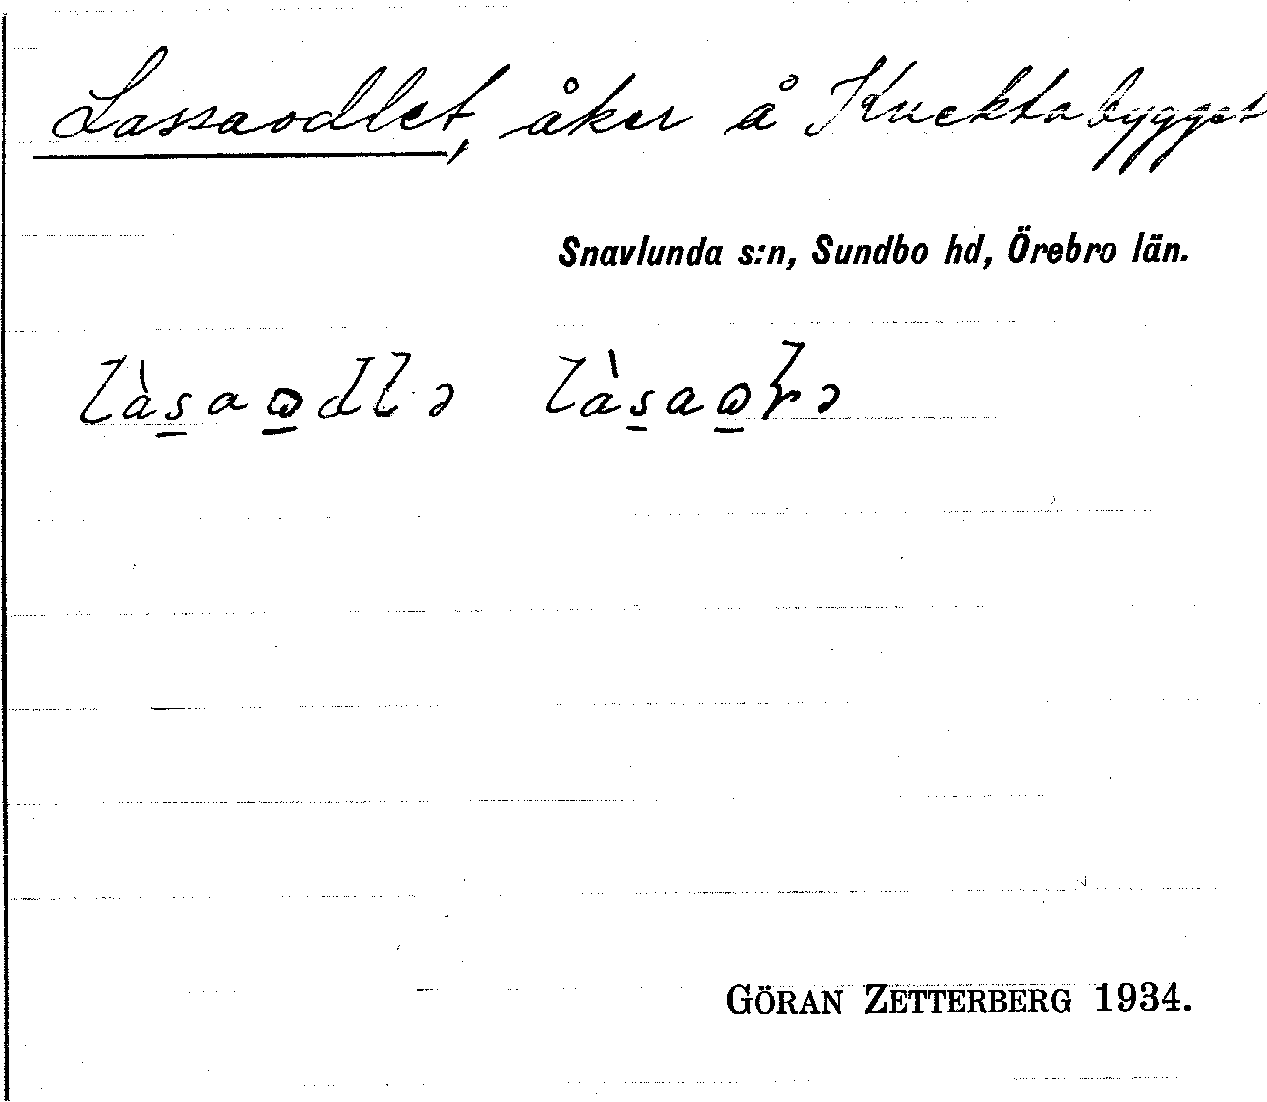 Lassaodlet, åker å Knektabygget
Snavlunda s:n, Sundbo hd, Örebro län.
GÖRAN ZETTERBERG 1934.